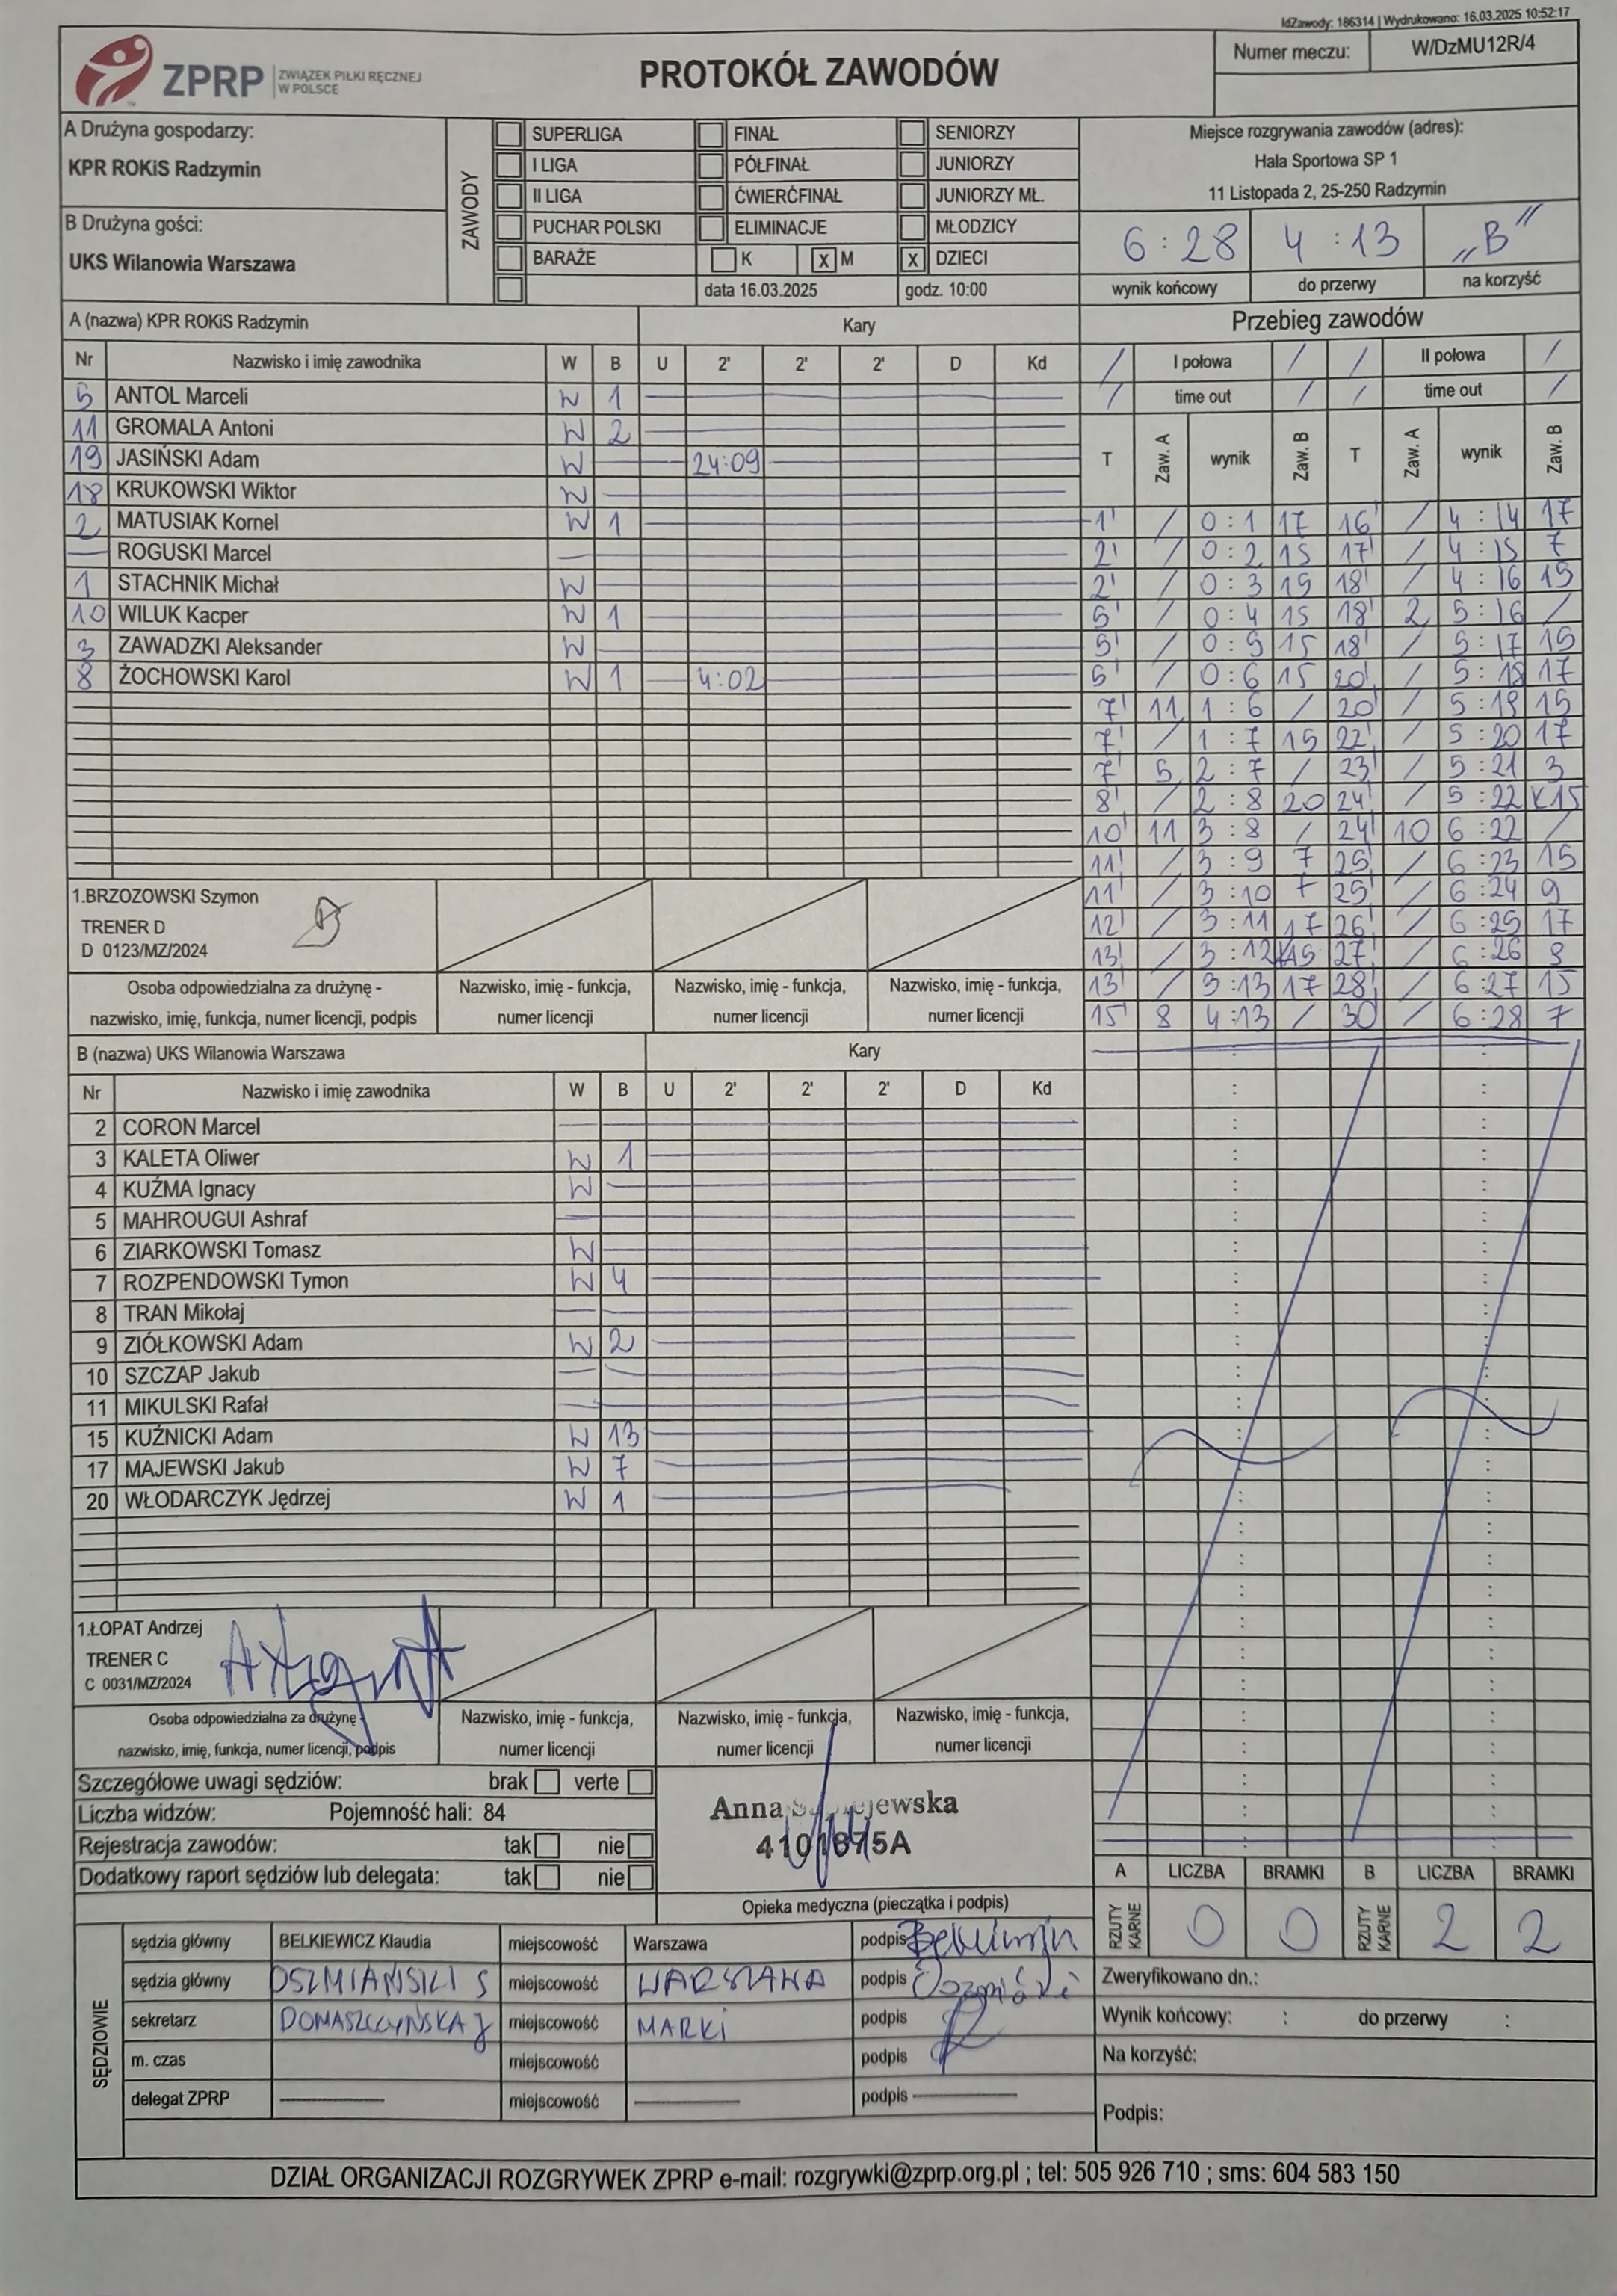 IdZawody: 186314 | Wydrukowano: 16.03.2025 10:52:17
ZPRP ZWIĄZEK PIŁKI RĘCZNEJ W POLSCE
PROTOKÓŁ ZAWODÓW
Numer meczu: W/DzMU12R/4
A Drużyna gospodarzy:
KPR ROKiS Radzymin
B Drużyna gości:
UKS Wilanowia Warszawa
ZAWODY
SUPERLIGA FINAŁ SENIORZY
I LIGA PÓŁFINAŁ JUNIORZY
II LIGA ĆWIERĆFINAŁ JUNIORZY MŁ.
PUCHAR POLSKI ELIMINACJE MŁODZICY
BARAŻE K X M X DZIECI
data 16.03.2025 godz. 10:00
Miejsce rozgrywania zawodów (adres):
Hala Sportowa SP 1
11 Listopada 2, 25-250 Radzymin
6 : 28 4 : 13 „B"
wynik końcowy do przerwy na korzyść
A (nazwa) KPR ROKiS Radzymin Kary
Nr Nazwisko i imię zawodnika W B U 2' 2' 2' D Kd
5 ANTOL Marceli W 1
11 GROMALA Antoni W 2
19 JASIŃSKI Adam W 24:09
18 KRUKOWSKI Wiktor W
2 MATUSIAK Kornel W 1
ROGUSKI Marcel
1 STACHNIK Michał W
10 WILUK Kacper W 1
3 ZAWADZKI Aleksander W
8 ŻOCHOWSKI Karol W 1 4:02
1.BRZOZOWSKI Szymon
TRENER D
D 0123/MZ/2024
Osoba odpowiedzialna za drużynę - Nazwisko, imię - funkcja, Nazwisko, imię - funkcja, Nazwisko, imię - funkcja,
nazwisko, imię, funkcja, numer licencji, podpis numer licencji numer licencji numer licencji
Przebieg zawodów
/ I połowa / / II połowa /
/ time out / / time out /
T Zaw. A wynik Zaw. B T Zaw. A wynik Zaw. B
1' / 0:1 17 16' / 4:14 17
2' / 0:2 15 17' / 4:15 7
2' / 0:3 15 18' / 4:16 15
5' / 0:4 15 18' 2 5:16 /
5' / 0:5 15 18' / 5:17 15
5' / 0:6 15 20' / 5:18 17
7' 11 1:6 / 20' / 5:19 15
7' / 1:7 15 22' / 5:20 17
7' 5 2:7 / 23' / 5:21 3
8' / 2:8 20 24' / 5:22 K15
10' 11 3:8 / 24' 10 6:22 /
11' / 3:9 7 25' / 6:23 15
11' / 3:10 7 25' / 6:24 9
12' / 3:11 17 26' / 6:25 17
13' / 3:12 K15 27' / 6:26 9
13' / 3:13 17 28' / 6:27 15
15' 8 4:13 / 30' / 6:28 7
B (nazwa) UKS Wilanowia Warszawa Kary
Nr Nazwisko i imię zawodnika W B U 2' 2' 2' D Kd
2 CORON Marcel
3 KALETA Oliwer W 1
4 KUŹMA Ignacy W
5 MAHROUGUI Ashraf
6 ZIARKOWSKI Tomasz W
7 ROZPENDOWSKI Tymon W 4
8 TRAN Mikołaj
9 ZIÓŁKOWSKI Adam W 2
10 SZCZAP Jakub
11 MIKULSKI Rafał
15 KUŹNICKI Adam W 13
17 MAJEWSKI Jakub W 7
20 WŁODARCZYK Jędrzej W 1
1.ŁOPAT Andrzej
TRENER C
C 0031/MZ/2024
Osoba odpowiedzialna za drużynę - Nazwisko, imię - funkcja, Nazwisko, imię - funkcja, Nazwisko, imię - funkcja,
nazwisko, imię, funkcja, numer licencji, podpis numer licencji numer licencji numer licencji
Szczegółowe uwagi sędziów: brak verte
Liczba widzów: Pojemność hali: 84
Rejestracja zawodów: tak nie
Dodatkowy raport sędziów lub delegata: tak nie
Anna
4101875A
Opieka medyczna (pieczątka i podpis)
A LICZBA BRAMKI B LICZBA BRAMKI
RZUTY KARNE 0 0 RZUTY KARNE 2 2
SĘDZIOWIE
sędzia główny BELKIEWICZ Klaudia miejscowość Warszawa podpis
sędzia główny OSZMIAŃSKI S miejscowość WARSZAWA podpis
sekretarz DOMASZCZYŃSKA J miejscowość MARKI podpis
m. czas miejscowość podpis
delegat ZPRP miejscowość podpis
Zweryfikowano dn.:
Wynik końcowy: : do przerwy :
Na korzyść:
Podpis:
DZIAŁ ORGANIZACJI ROZGRYWEK ZPRP e-mail: rozgrywki@zprp.org.pl ; tel: 505 926 710 ; sms: 604 583 150